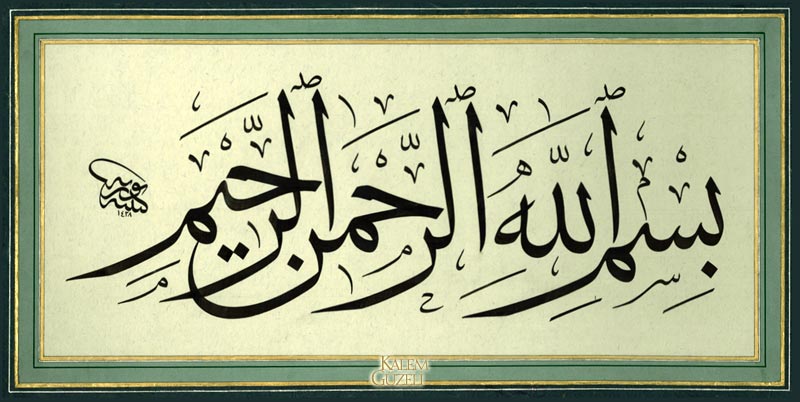 بِسْمِ ٱللّٰهِ ٱلرَّحْمٰنِ ٱلرَّحِيمِ
١٤٢٨
KALEM
GÜZELİ